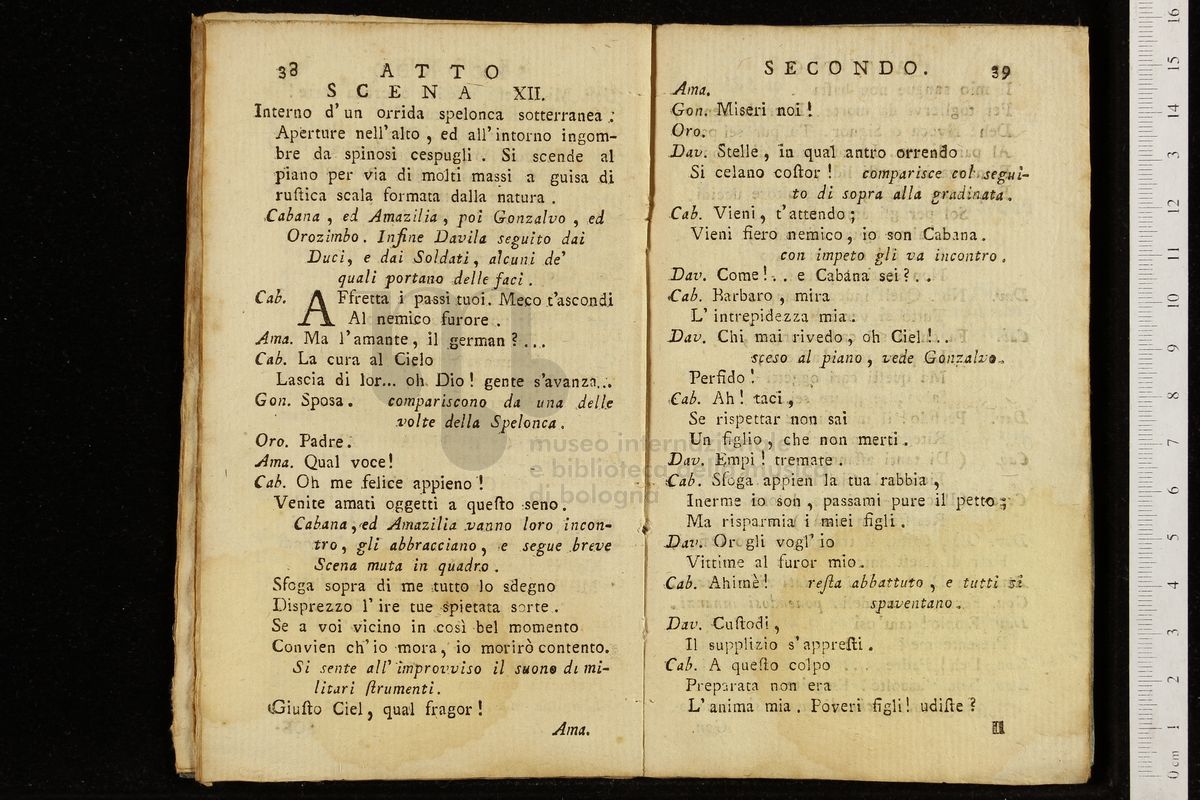 38 ATTO
SCENA XII.
Interno d' un orrida spelonca sotterranea :
Aperture nell' alto , ed all' intorno ingom-
bre da spinosi cespugli . Si scende al
piano per via di molti massi a guisa di
ruſtica scala formata dalla natura .
Cabana , ed Amazilia , poi Gonzalvo , ed
Orozimbo . Infine Davila seguito dai
Duci, e dai Soldati, alcuni de'
quali portano delle faci .
Cab. AFfretta i passi tuoi. Meco t'ascondi
Al nemico furore .
Ama. Ma l'amante, il german ? ...
Cab. La cura al Cielo
Lascia di lor... oh Dio ! gente s'avanza...
Gon. Sposa . compariscono da una delle
volte della Spelonca .
Oro. Padre.
Ama. Qual voce!
Cab. Oh me felice appieno !
Venite amati oggetti a queſto seno .
Cabana, ed Amazilia vanno loro incon-
tro, gli abbracciano, e segue breve
Scena muta in quadro .
Sfoga sopra di me tutto lo sdegno
Disprezzo l' ire tue spietata sorte .
Se a voi vicino in così bel momento
Convien ch' io mora, io morirò contento.
Si sente all' improvviso il suono di mi-
litari ſtrumenti.
Giuſto Ciel, qual fragor !
Ama.
SECONDO. 39
Ama.
Gon. Miseri noi !
Oro.
Dav. Stelle , in qual antro orrendo
Si celano coſtor ! comparisce col segui-
to di sopra alla gradinata.
Cab. Vieni, t'attendo ;
Vieni fiero nemico, io son Cabana.
con impeto gli va incontro.
Dav. Come ! . . e Cabána sei ? . .
Cab. Barbaro , mira
L' intrepidezza mia.
Dav. Chi mai rivedo, oh Ciel ! . .
sceso al piano , vede Gonzalvo.
Perfido !
Cab. Ah ! taci ,
Se rispettar non sai
Un figlio , che non merti .
Dav. Empi ! tremate
Cab. Sfoga appien la tua rabbia ,
Inerme io son , passami pure il petto ;
Ma risparmia i miei figli .
Dav. Or gli vogl' io
Vittime al furor mio.
Cab. Ahimè ! reſta abbattuto , e tutti si
spaventano.
Dav. Cuſtodi ,
Il supplizio s' appreſti .
Cab. A queſto colpo
Preparata non era
L' anima mia . Poveri figli ! udiſte ?
Il
museo internazionale
e biblioteca della musica
di bologna
0 cm 1 2 3 4 5 6 7 8 9 10 11 12 13 14 15 16